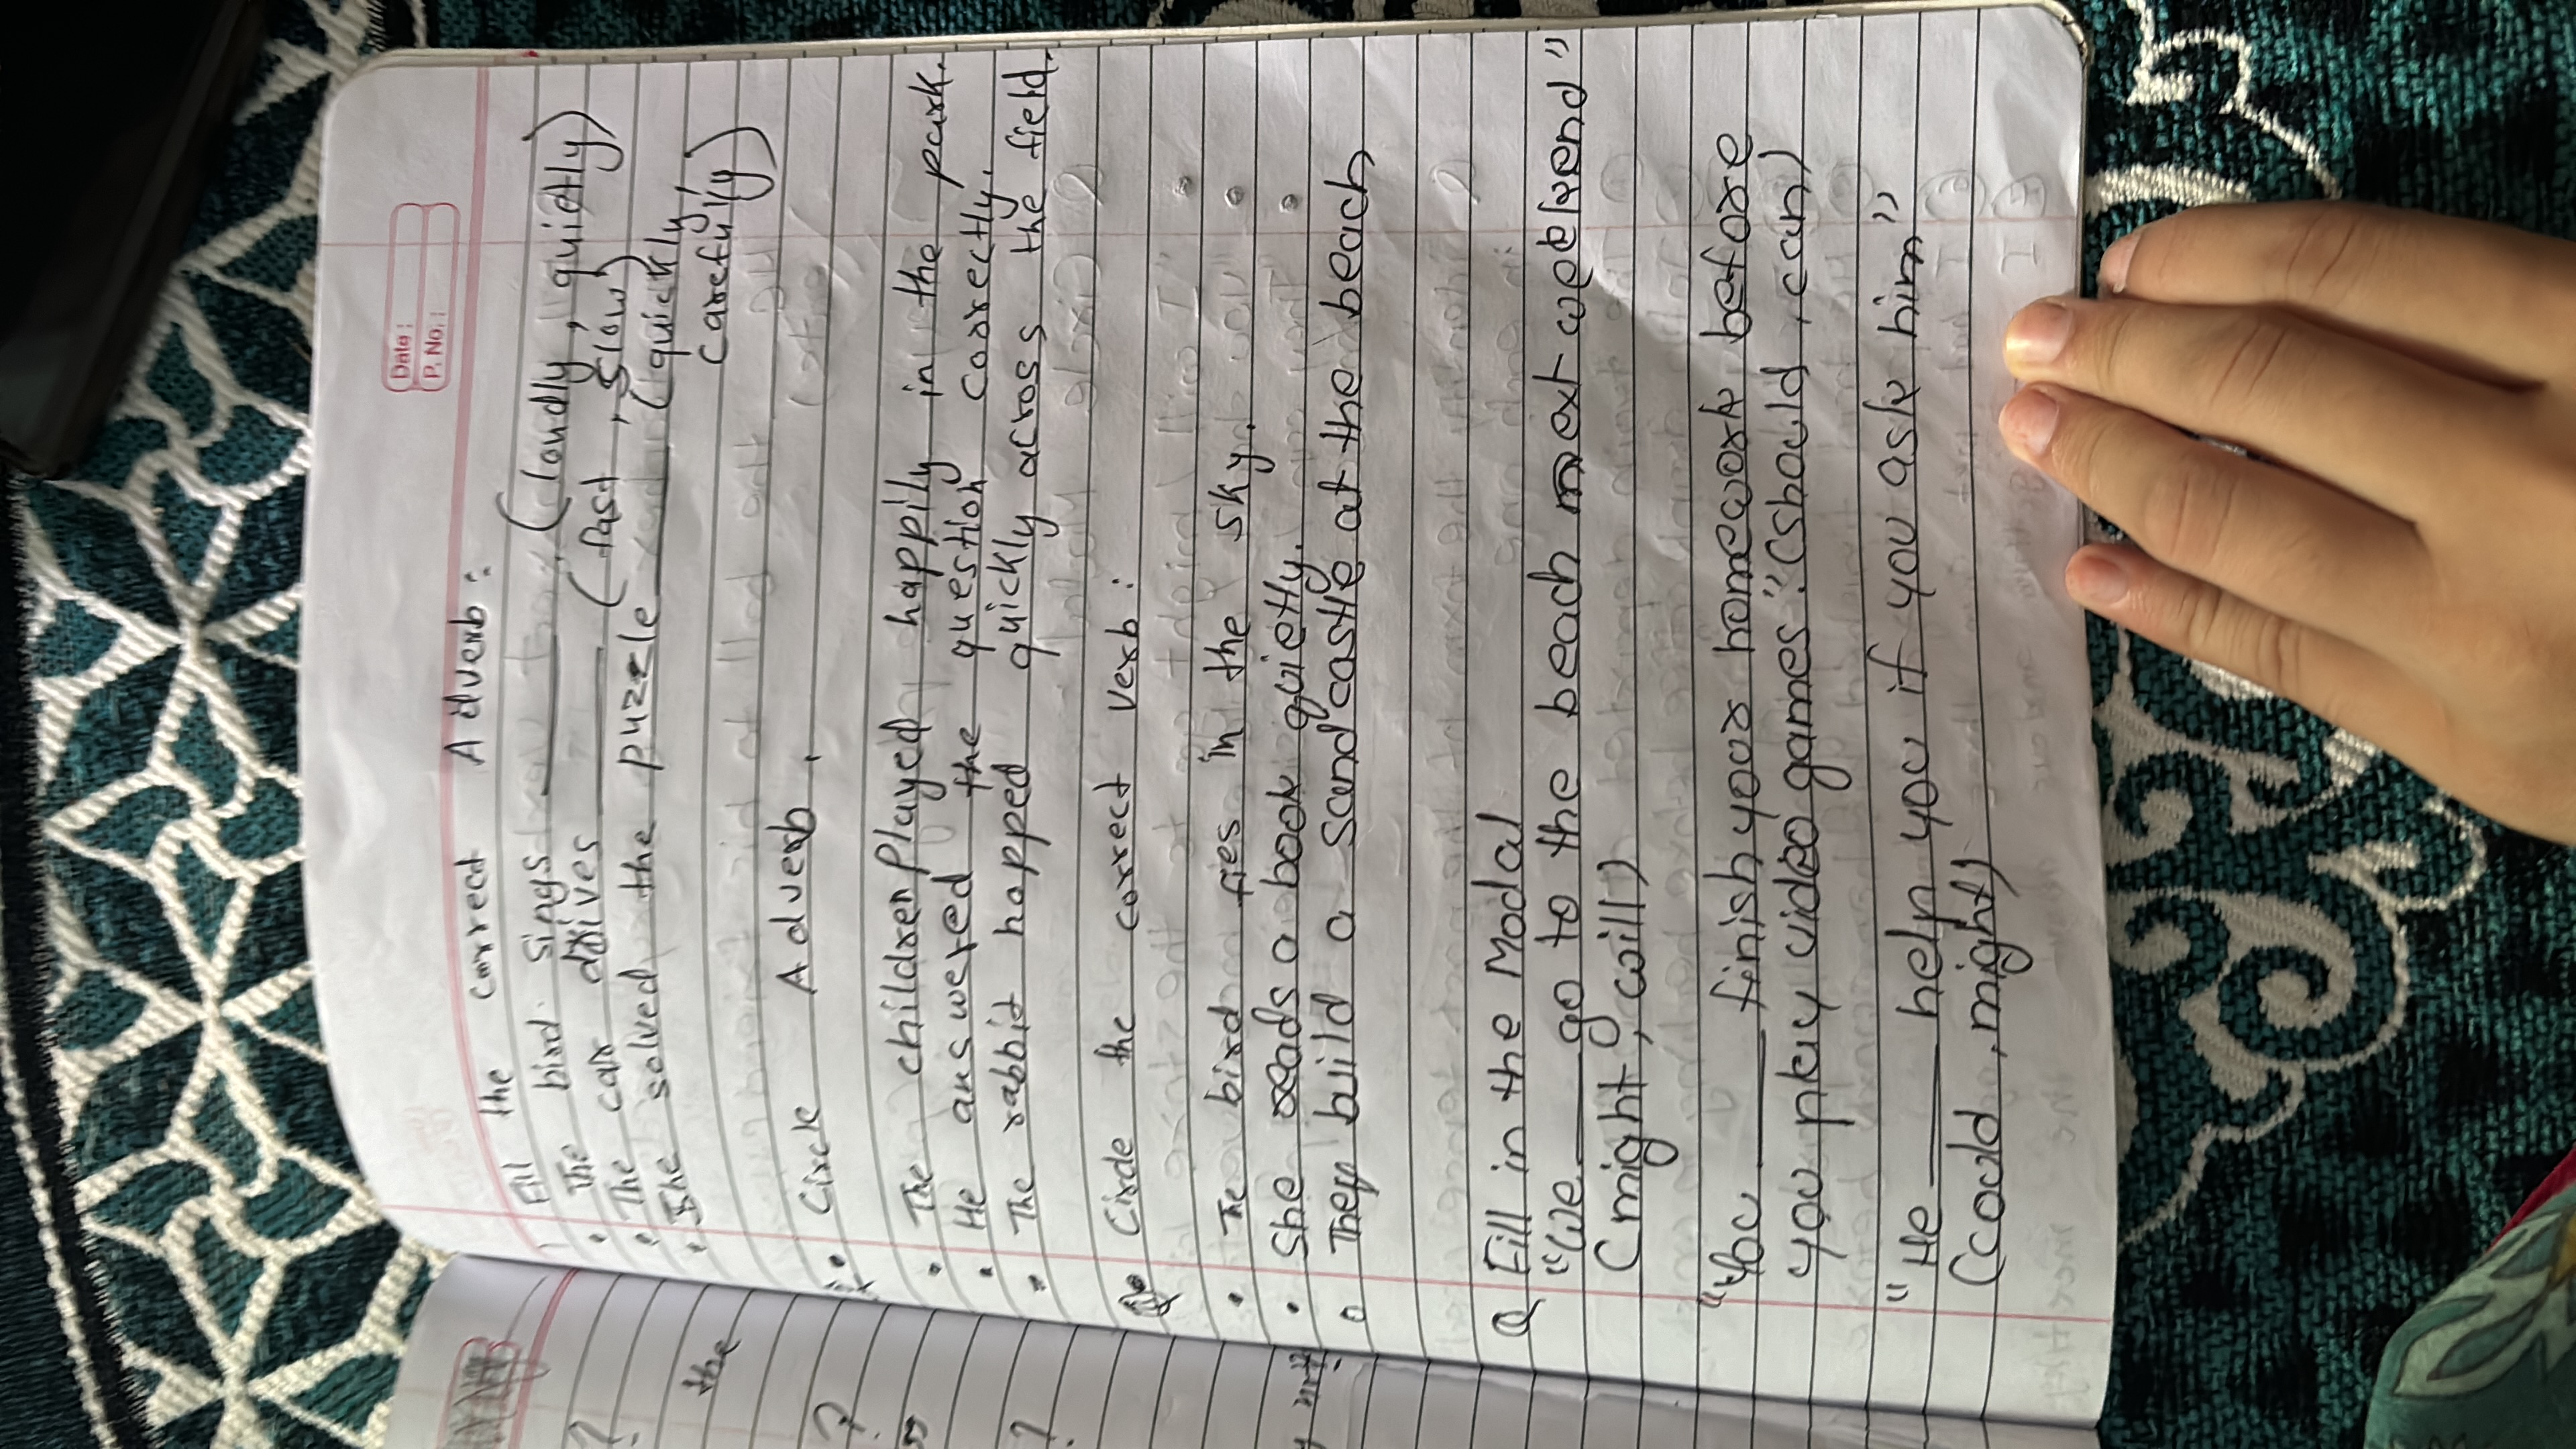 Date :
P. No. :
Fill the correct Adverb :
The bird sings ______ . (loudly, quietly)
The car drives ______ (fast, slow)
She solved the puzzle ______ (quickly,
carefully)
Circle Adverb .
The children Played happily in the park.
He answered the question correctly.
The rabbit hopped quickly across the field.
Q. Circle the correct verb :
The bird flies in the sky.
She reads a book quietly.
They build a sandcastle at the beach
Q Fill in the Modal
"We ____ go to the beach next weekend"
(might, will)
"You ____ finish your homework before
you play video games". (should, can)
"He ____ help you if you ask him"
(could, might)
the
?
?
?